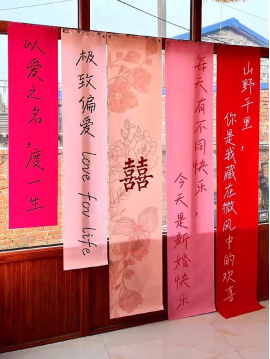 以爱之名，度一生
极致偏爱 love for life
囍
每天有不同快乐
今天是新婚快乐
山野千里，
你是我藏在微风中的欢喜